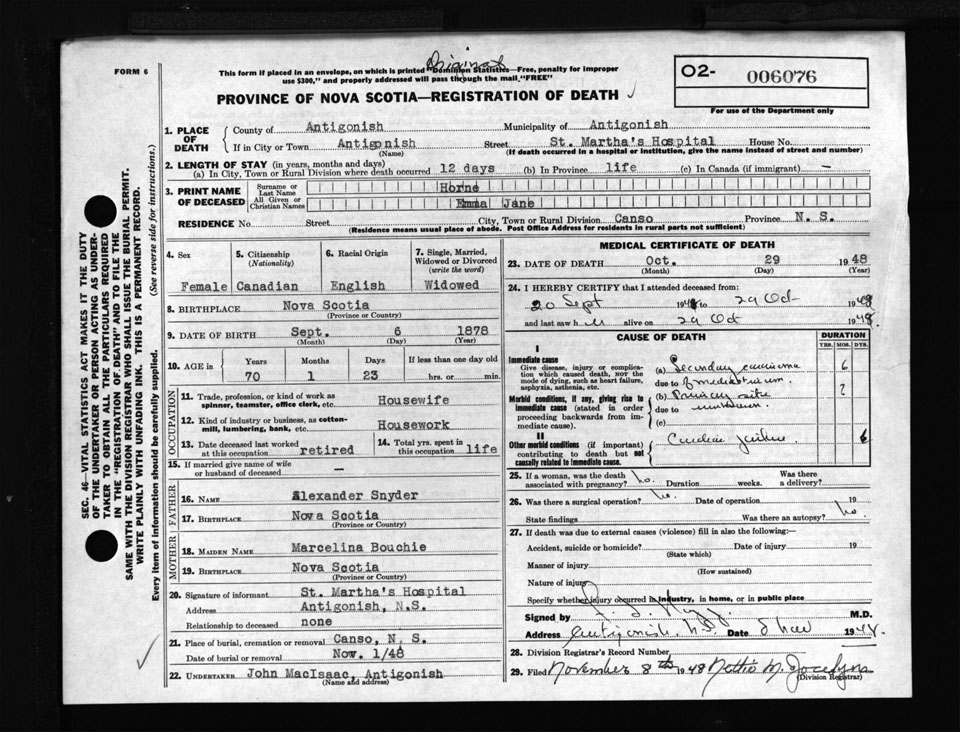 Original
FORM 6
This form if placed in an envelope, on which is printed "Dominion Statistics—Free, penalty for improper
use $300," and properly addressed will pass through the mail, "FREE"
PROVINCE OF NOVA SCOTIA—REGISTRATION OF DEATH
O2- 006076
For use of the Department only
SEC. 46—VITAL STATISTICS ACT MAKES IT THE DUTY
OF THE UNDERTAKER OR PERSON ACTING AS UNDER-
TAKER TO OBTAIN ALL THE PARTICULARS REQUIRED
IN THE "REGISTRATION OF DEATH" AND TO FILE THE
SAME WITH THE DIVISION REGISTRAR WHO SHALL ISSUE THE BURIAL PERMIT.
WRITE PLAINLY WITH UNFADING INK. THIS IS A PERMANENT RECORD.
Every item of information should be carefully supplied. (See reverse side for instructions.)
1. PLACE OF DEATH
County of Antigonish Municipality of Antigonish
If in City or Town Antigonish Street St. Martha's Hospital House No.
(Name) (If death occurred in a hospital or institution, give the name instead of street and number)
2. LENGTH OF STAY (in years, months and days)
(a) In City, Town or Rural Division where death occurred 12 days (b) In Province life (c) In Canada (if immigrant) —
3. PRINT NAME OF DECEASED
Surname or Last Name Horne
All Given or Christian Names Emma Jane
RESIDENCE No. Street City, Town or Rural Division Canso Province N. S.
(Residence means usual place of abode. Post Office Address for residents in rural parts not sufficient)
4. Sex Female
5. Citizenship (Nationality) Canadian
6. Racial Origin English
7. Single, Married, Widowed or Divorced (write the word) Widowed
8. BIRTHPLACE Nova Scotia
(Province or Country)
9. DATE OF BIRTH Sept. 6 1878
(Month) (Day) (Year)
10. AGE in Years Months Days If less than one day old
70 1 23 hrs. or min.
OCCUPATION
11. Trade, profession, or kind of work as spinner, teamster, office clerk, etc. Housewife
12. Kind of industry or business, as cotton-mill, lumbering, bank, etc. Housework
13. Date deceased last worked at this occupation retired
14. Total yrs. spent in this occupation life
15. If married give name of wife or husband of deceased —
FATHER
16. NAME Alexander Snyder
17. BIRTHPLACE Nova Scotia
(Province or Country)
MOTHER
18. MAIDEN NAME Marcelina Bouchie
19. BIRTHPLACE Nova Scotia
(Province or Country)
20. Signature of informant St. Martha's Hospital
Address Antigonish, N.S.
Relationship to deceased none
21. Place of burial, cremation or removal Canso, N. S.
Date of burial or removal Nov. 1/48
22. UNDERTAKER John MacIsaac, Antigonish
(Name and address)
MEDICAL CERTIFICATE OF DEATH
23. DATE OF DEATH Oct. 29 1948
(Month) (Day) (Year)
24. I HEREBY CERTIFY that I attended deceased from:
20 Sept 1948 to 29 Oct 1948
and last saw her alive on 29 Oct 1948.
CAUSE OF DEATH DURATION
YRS. MOS. DYS.
I
Immediate cause
Give disease, injury or complication which caused death, NOT the mode of dying, such as heart failure, asphyxia, asthenia, etc.
(a) Secondary carcinoma 6
due to of mediastinum.
Morbid conditions, if any, giving rise to immediate cause (stated in order proceeding backwards from immediate cause).
(b) Primary site ?
due to unknown.
(c)
II
Other morbid conditions (if important) contributing to death but not causally related to immediate cause.
Cardiac failure. 6
25. If a woman, was the death associated with pregnancy? no. Duration weeks. Was there a delivery?
26. Was there a surgical operation? no. Date of operation 19
State findings Was there an autopsy? no.
27. If death was due to external causes (violence) fill in also the following:—
Accident, suicide or homicide? Date of injury 19
(State which)
Manner of injury
(How sustained)
Nature of injury
Specify whether injury occurred in industry, in home, or in public place
Signed by M.D.
Address Antigonish, N.S. Date 8 Nov 1948.
28. Division Registrar's Record Number
29. Filed November 8th 1948 Nettie M. Jocelyn
(Division Registrar)